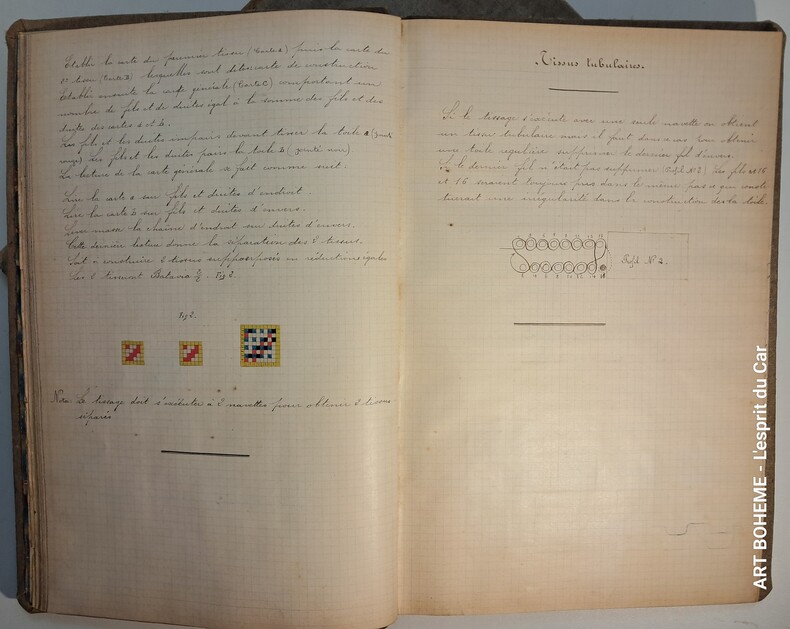 Etablir la carte du premier tissu (Carte A) puis la carte du
2e tissu (Carte B) lesquelles sont dites carte de construction
Etablir ensuite la carte générale (Carte C) comportant un
nombre de fils et de duites égal à la somme des fils et des
duites des cartes A et B.
Les fils et les duites impairs devant tisser la toile A (pointé
rouge) Les fils et les duites pairs la toile B (pointé noir).
La lecture de la carte générale se fait comme suit.
Lire la carte A sur fils et duites d'endroit.
Lire la carte B sur fils et duites d'envers.
Lever masse la chaîne d'endroit sur duites d'envers.
Cette dernière lecture donne la séparation des 2 tissus.
Soit à construire 2 tissus superposés en réductions égales
Les 2 tissus Batavia 2/2 Fig 2.
Fig 2.
Nota Le tissage doit s'exécuter à 2 navettes pour obtenir 2 tissus
séparés
Tissus tubulaires.
Si le tissage s'exécute avec une seule navette on obtient
un tissu tubulaire mais il faut dans ce cas pour obtenir
une toile régulière supprimer le dernier fil d'envers.
Si le dernier fil n'était pas supprimé (Profil No 2) Les fils 15
et 16 seraient toujours pris dans le même pas ce qui consti
tuerait une irrégularité dans la construction de la toile.
Profil No 2.
ART BOHEME - L'esprit du Car